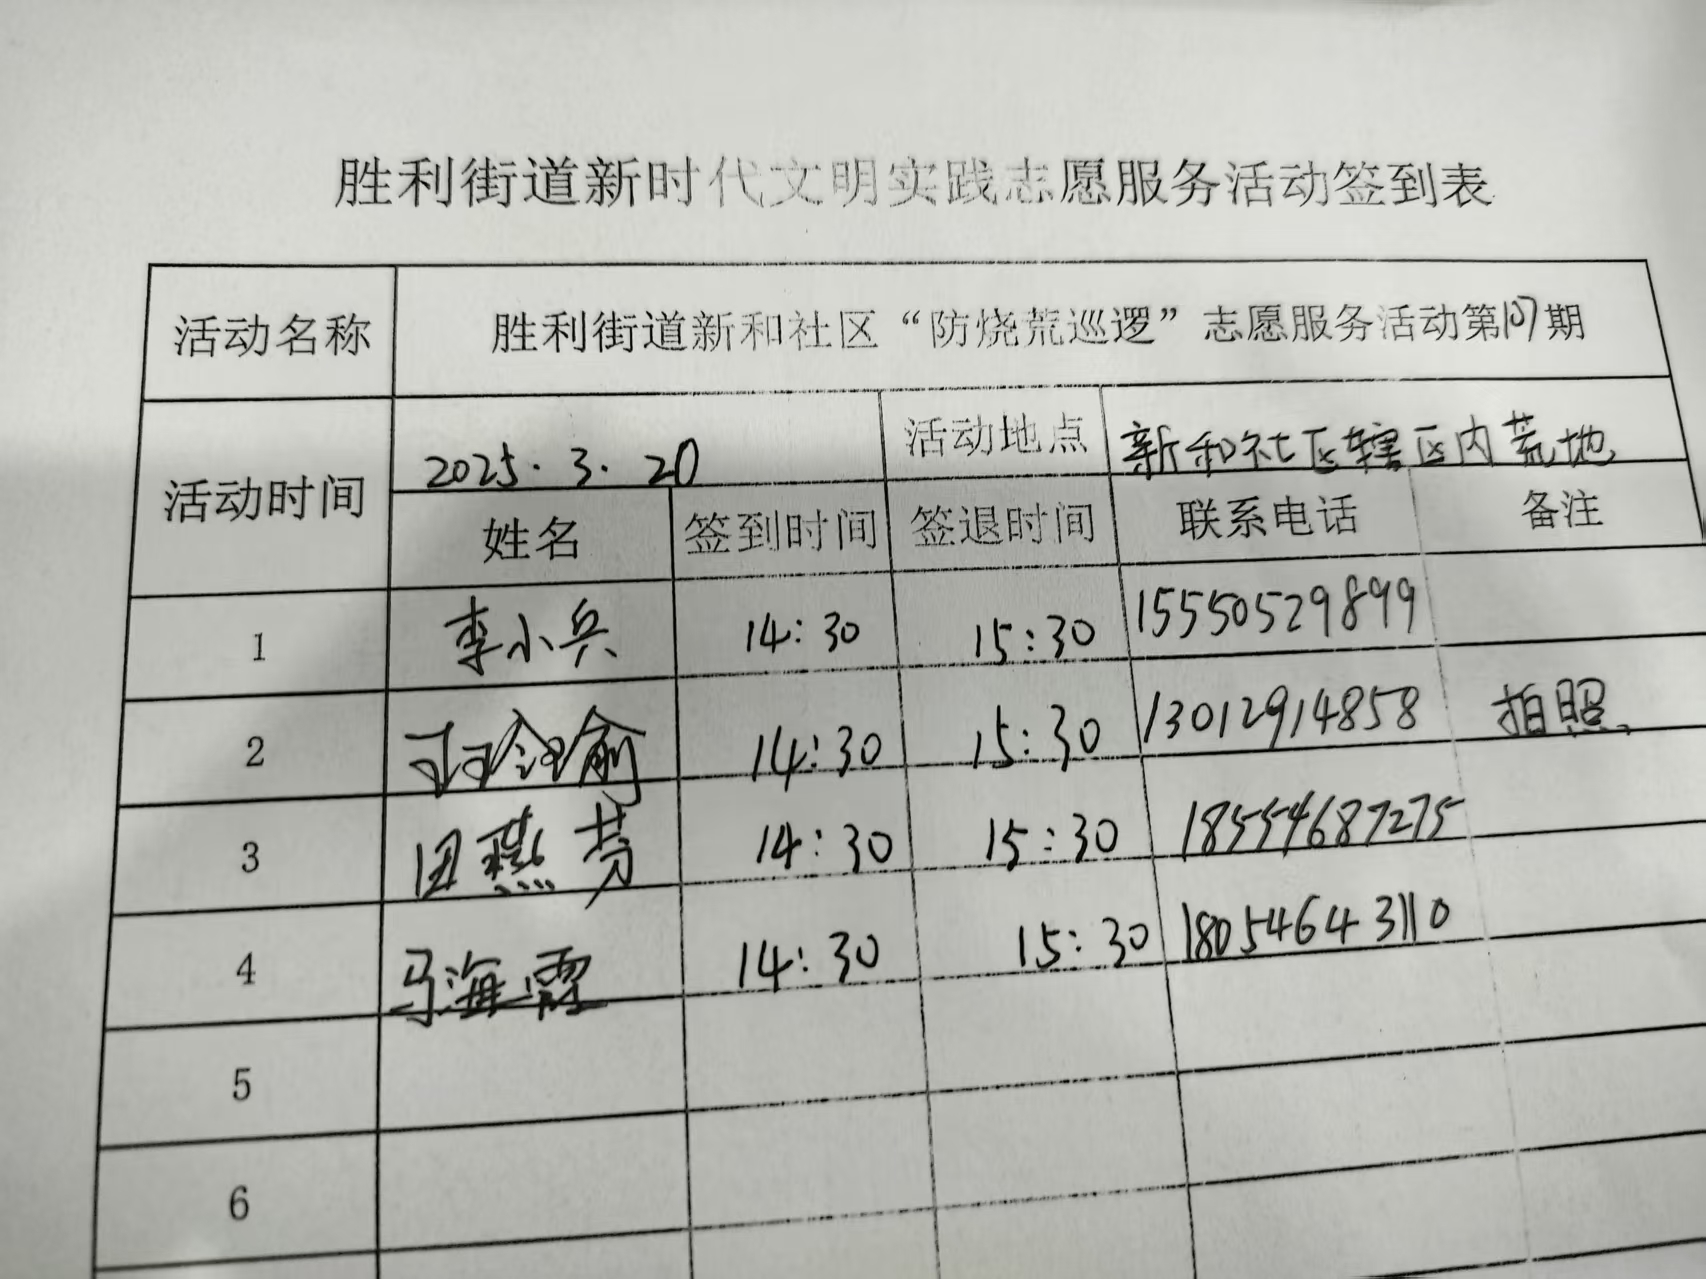 胜利街道新时代文明实践志愿服务活动签到表
活动名称 胜利街道新和社区“防烧荒巡逻”志愿服务活动第107期
活动时间 2025.3.20 活动地点 新和社区辖区内荒地
姓名 签到时间 签退时间 联系电话 备注
1 李小兵 14:30 15:30 15550529899
2 14:30 15:30 13012914858 拍照
3 田燕芳 14:30 15:30 18554687275
4 马海霞 14:30 15:30 18054643110
5
6